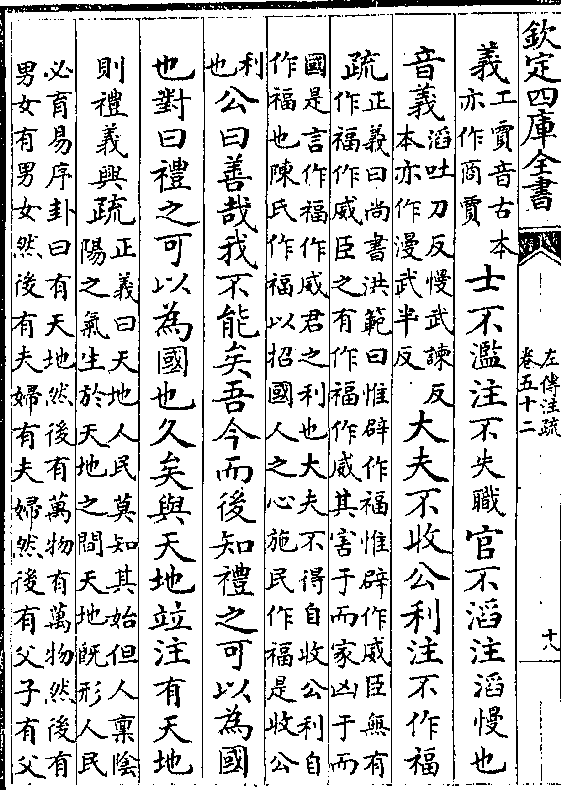 欽定四庫全書
左傳注疏
卷五十二
十八
義
工賈音古本
亦作商賈
士不濫注不失職官不滔注滔慢也
音義
滔吐刀反慢武諫反
本亦作漫武半反
大夫不收公利注不作福
疏
正義曰尚書洪範曰惟辟作福惟辟作威臣無有
作福作威臣之有作福作威其害于而家凶于而
國是言作福作威君之利也大夫不得自收公利自
作福也陳氏作福以招國人之心施民作福是收公
利
也
公曰善哉我不能矣吾今而後知禮之可以為國
也對曰禮之可以為國也久矣與天地竝注有天地
則禮義興疏
正義曰天地人民莫知其始但人稟陰
陽之氣生於天地之間天地既形人民
必育易序卦曰有天地然後有萬物有萬物然後有
男女有男女然後有夫婦有夫婦然後有父子有父